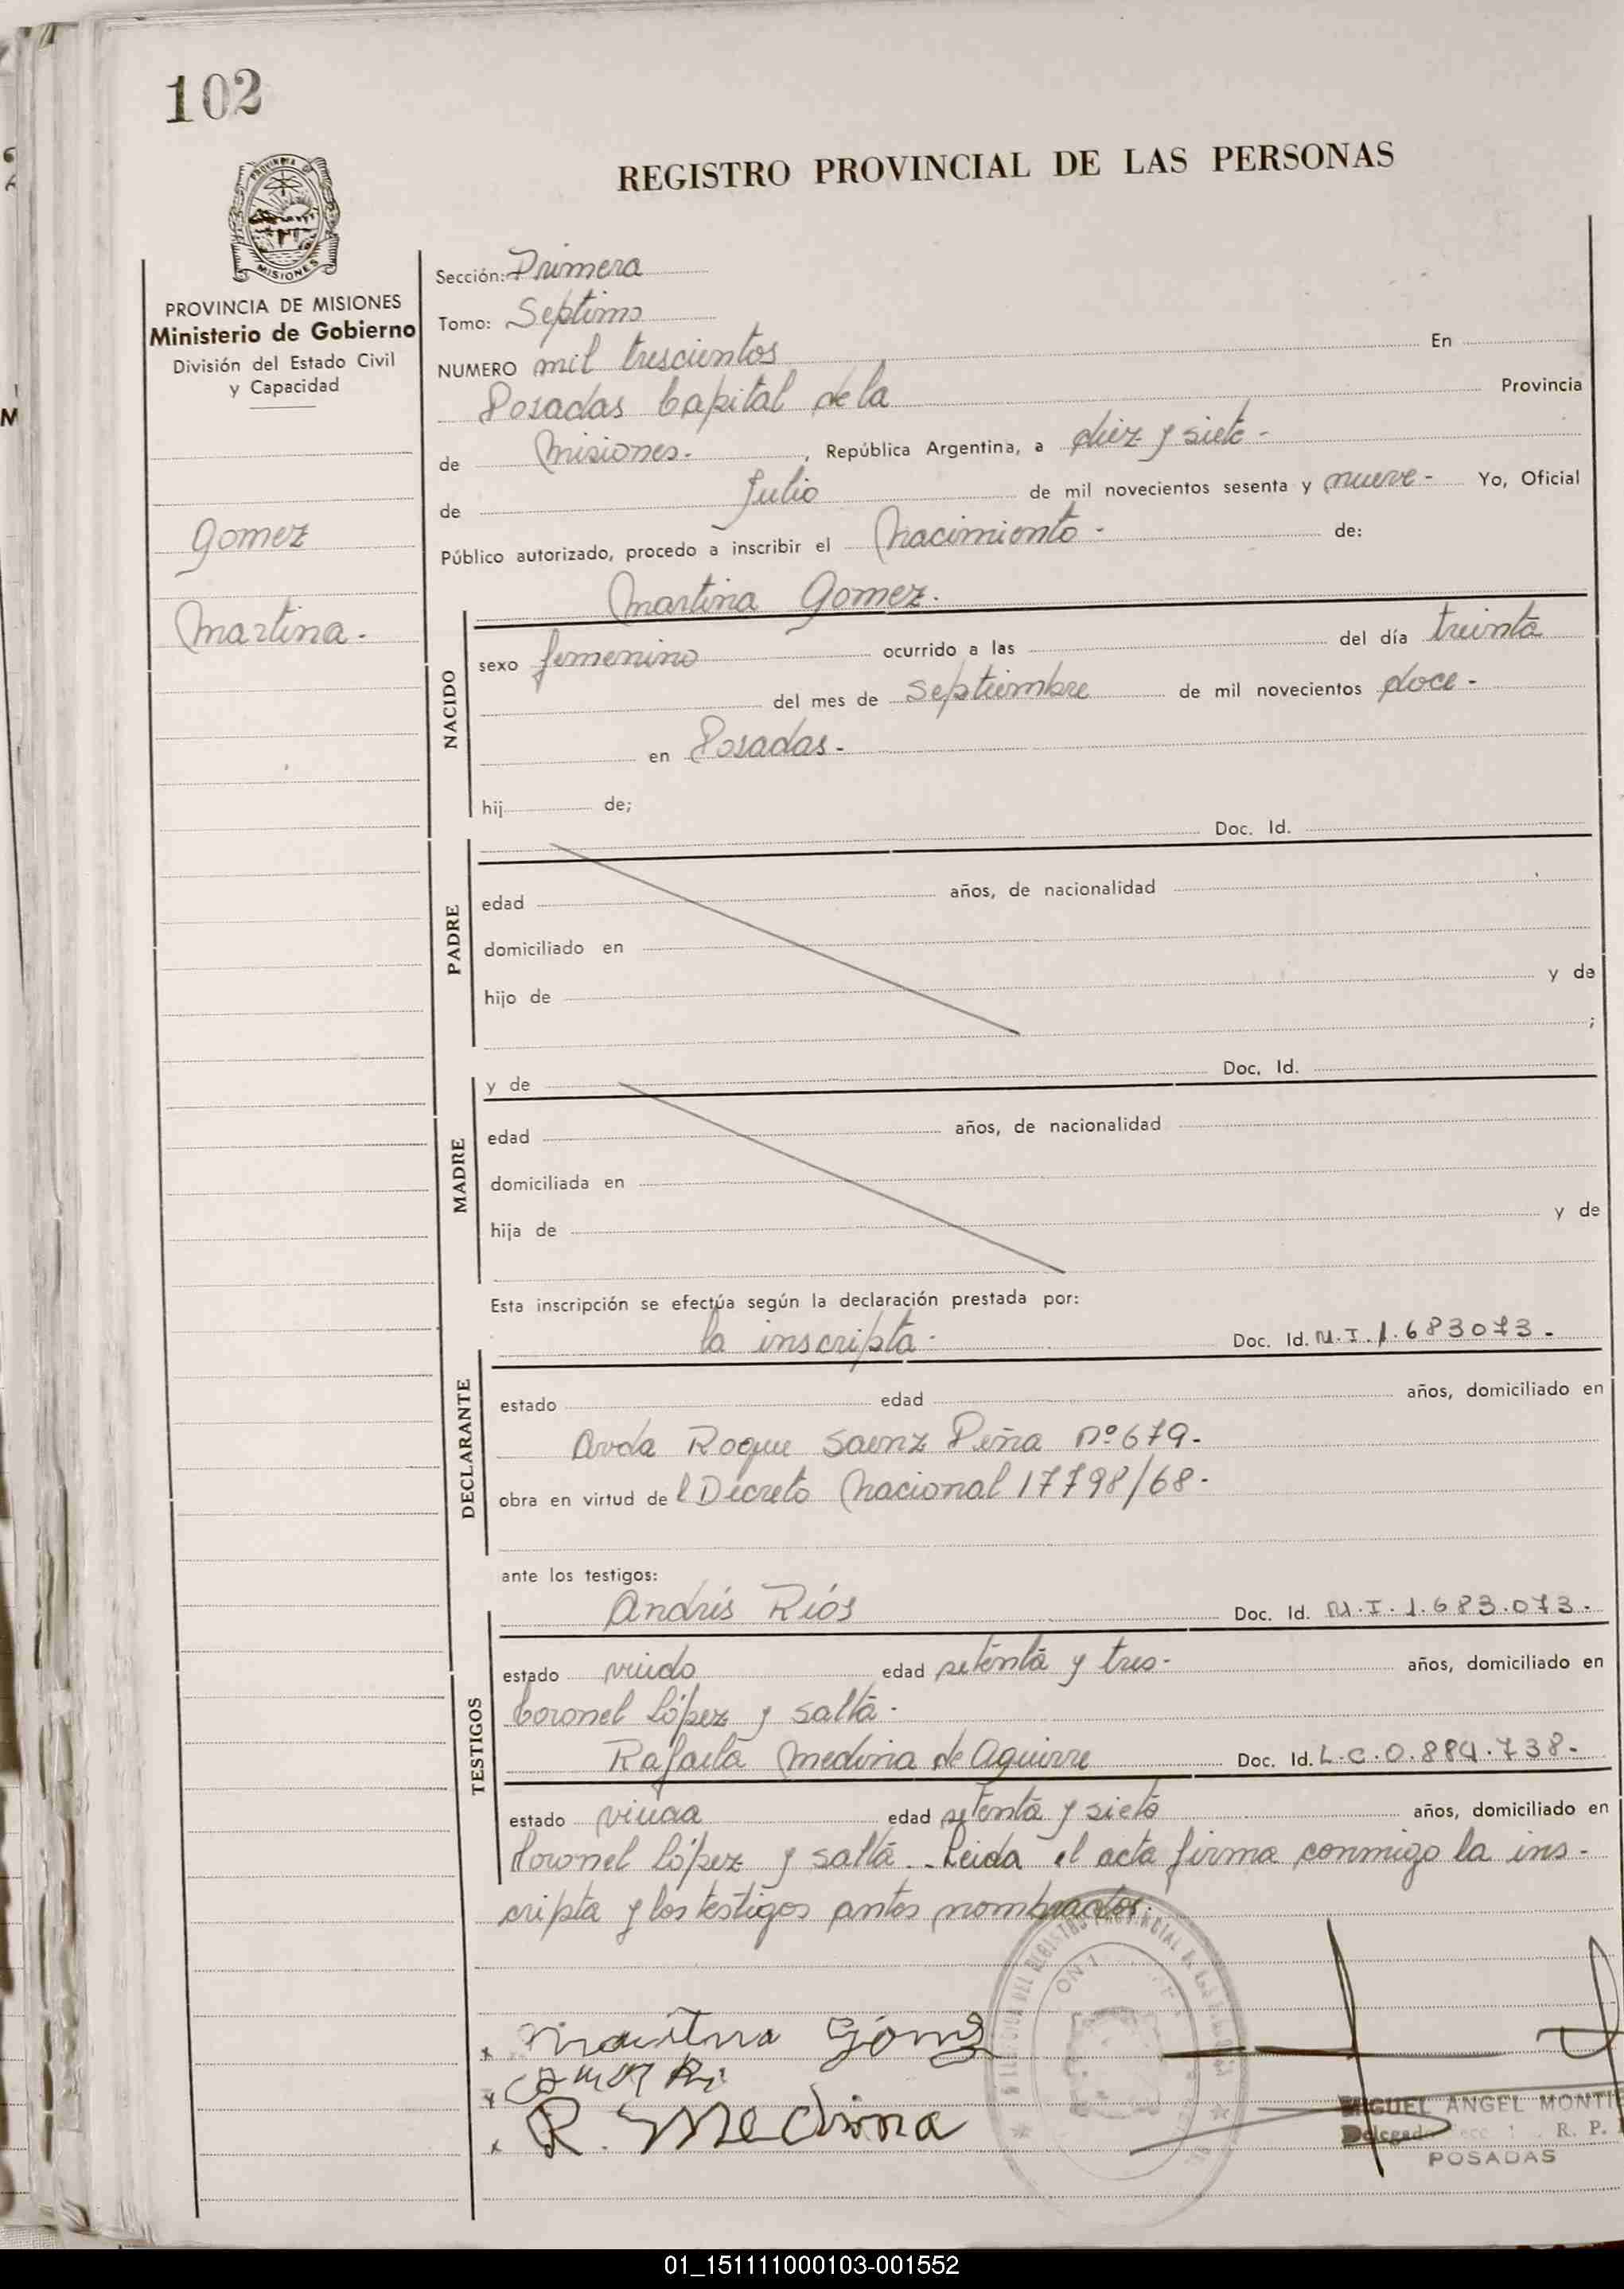 102
REGISTRO PROVINCIAL DE LAS PERSONAS
PROVINCIA DE MISIONES
Ministerio de Gobierno
División del Estado Civil
y Capacidad
Gomez
Martina.
Sección: Primera
Tomo: Septimo
NUMERO mil trescientos En
Posadas Capital de la Provincia
de Misiones. , República Argentina, a diez y siete -
de Julio de mil novecientos sesenta y nueve - Yo, Oficial
Público autorizado, procedo a inscribir el Nacimiento - de:
Martina Gomez.
NACIDO
sexo femenino ocurrido a las del día treinta
del mes de septiembre de mil novecientos doce -
en Posadas -
hij de;
Doc. Id.
PADRE
edad años, de nacionalidad
domiciliado en
hijo de y de
;
y de Doc. Id.
MADRE
edad años, de nacionalidad
domiciliada en
hija de y de
Esta inscripción se efectúa según la declaración prestada por:
la inscripta - Doc. Id. M.I. 1.683073 -
DECLARANTE
estado edad años, domiciliado en
Avda Roque Saenz Peña nº 679 -
obra en virtud de l Decreto Nacional 17798/68 -
ante los testigos:
Andrés Ríos Doc. Id. M.I. 1.683.073 -
TESTIGOS
estado viudo edad setenta y tres - años, domiciliado en
Coronel López y Salta -
Rafaela Medina de Aguirre Doc. Id. L.C. 0.884.738 -
estado viuda edad setenta y siete años, domiciliado en
Coronel López y Salta. - Leida el acta firma conmigo la ins -
cripta y los testigos antes nombrados.
x Martina Gomez
x
x R. Medina
MIGUEL ANGEL MONTI
R. P.
POSADAS
01_151111000103-001552